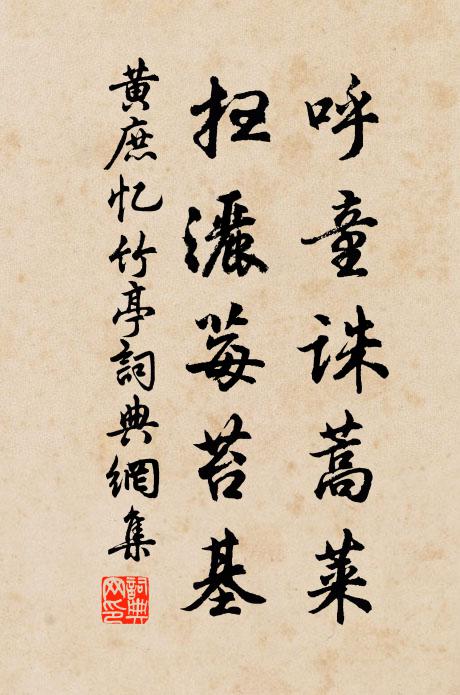 呼童誅蒿萊
扫灑莓苔基
黄庶忆竹亭詞典網集
詞典網印